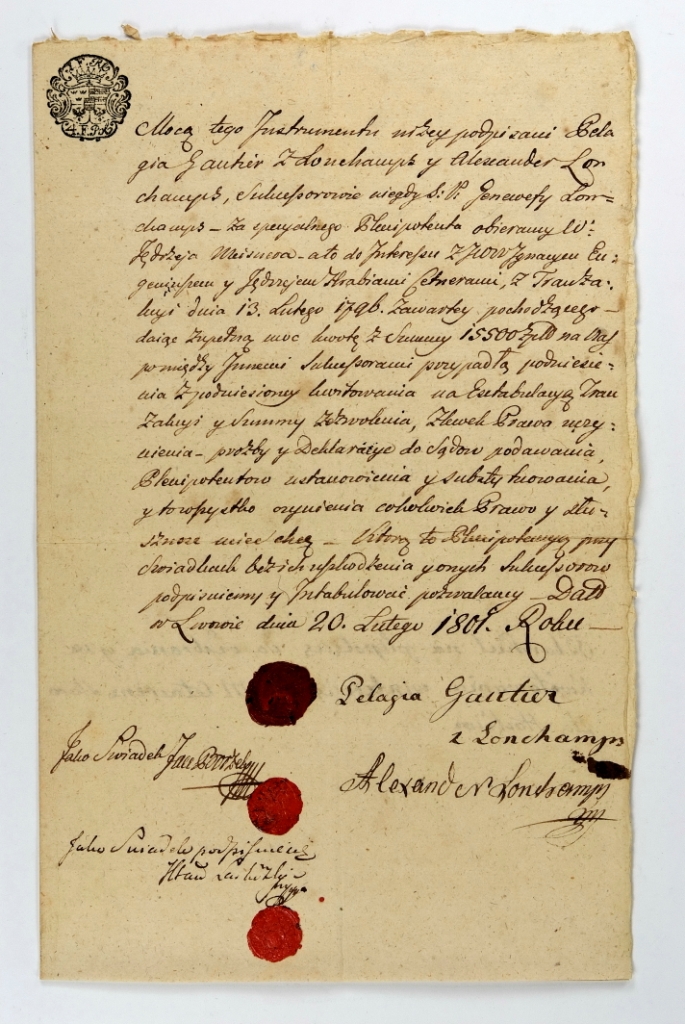 Mocą tego Instrumentu niżey podpisani Pela
gia Gautier z Lonchamps y Alexander Lon
champs, Sukcessorowie niegdy Ś: P: Genewefy Lon=
champs – za specyalnego Plenipotenta obieramy W:
Jędrzeja – a to do Interessu z JWW Ignacym Eu=
geniuszem y Jędrzejem Hrabiami Cetnerami, z Tranza=
kcyi dnia 13. Lutego 1796. zawartey pochodzącego –
daiąc zupełną moc kwotę z Summy 15500 na Nas
pomiędzy Innemi Sukcessorami przypadłą podniesie=
nia z podniesioney kwitowania na Extabulacyą Tran
zakcyi y Summy zezwolenia, Prawa uczy=
nienia – prożby y Deklaracye do Sądow podawania,
Plenipotentow ustanowienia y substytuowania,
y to wszystko czynienia cokolwiek Prawo y słu=
szność mieć chcą – Ktorą to Plenipotencyą przy
Swiadkach bez ich uszkodzenia y onych Sukcessorow
podpisuiemy y Intabulować pozwalamy – Datt
w Lwowie dnia 20. Lutego 1801. Roku –
Pelagia Gautier
z Lonchamps
Jako Swiadek Jan
Alexander Lonchamps
Jako Swiadek podpisuię